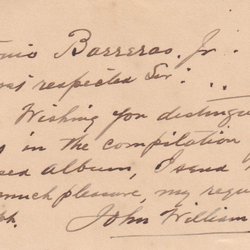 onio Barreras, Jr.
respected Sir:
Wishing you distingui
s in the compilation
album, I send
much pleasure, my reque
John William